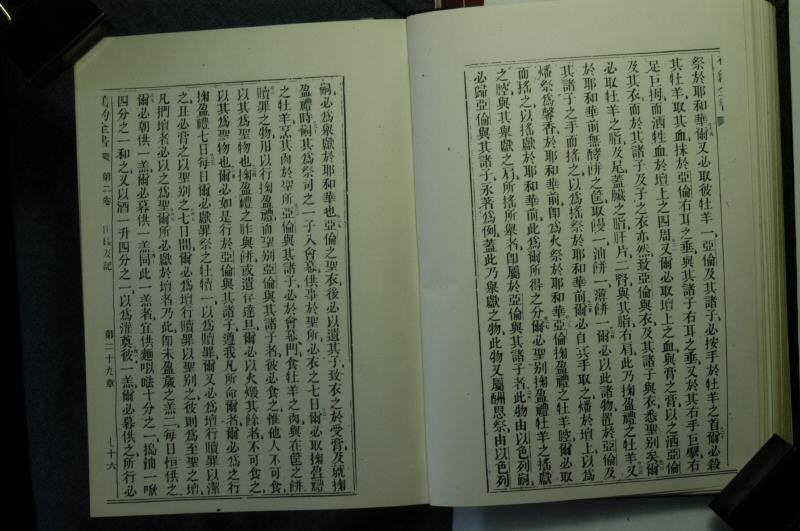 祭於耶和華爾又必取彼牡羊一亞倫及其諸子必按手於牡羊之首爾必殺
其牡羊取其血抹於亞倫右耳之垂與其諸子右耳之垂又於其右手巨擘右
足巨拇而洒牲血於壇上之四周又爾必取壇上之血與膏之膏以之洒亞倫
及其衣而於其諸子及子之衣亦然致亞倫與衣及其諸子與衣悉聖別矣爾
必取牡羊之脂及尾蓋臟之脂肝片二腎與其脂右肩此乃掬盈禮之牡羊又
於耶和華前無酵餅之筐取饅一油餅一薄餅一爾必以此諸物置於亞倫及
其諸子之手而搖之以為搖祭於耶和華前爾必自其手取之燔於壇上以為
燔祭為馨香於耶和華前即為火祭於耶和華亞倫掬盈禮牡羊之胸爾必取
而搖之以搖獻於耶和華前此為爾所得之分爾必聖別掬盈禮牡羊之搖獻
之胸與其舉獻之肩所搖所舉者即屬於亞倫與其諸子者此物由以色列嗣
必歸亞倫與其諸子永著為例蓋此乃舉獻之物此物又屬酬恩祭由以色列
嗣必為舉獻於耶和華也亞倫之聖衣後必以遺其子致衣之於受膏及就掬
盈禮時嗣其為祭司之一子入會幕供事於聖所必衣之七日爾必取掬盈禮
之牡羊烹其肉於聖所亞倫與其諸子必於會幕門食牡羊之肉與在筐之餅
贖罪之物用以行掬盈禮而聖別亞倫與其諸子者彼必食之惟他人不可食之
以其為聖物也倘掬盈禮之胙與餅或遺存達旦爾必以火燬其餘者不可食之
以其為聖物也爾必如是行於亞倫與其諸子遵我凡所命爾者爾必為之行
掬盈禮七日每日爾必獻罪祭之牡犢一以為贖罪爾又必為壇行贖罪以潔
之且必膏之以聖別之七日間爾必為壇行贖罪以聖別之彼則為至聖之壇
凡捫壇者必以之為聖爾所必獻於壇者乃此即未盈歲之羔二每日恒供之
爾必朝供一羔爾必暮供一羔同此一羔者宜供麵以㕸十分之一搗油一㗇
四分之一和之又以酒一升四分之一以為灌奠彼一羔爾必暮供之所行必
舊約全書 第二卷 出埃及記 第二十九章 七十六